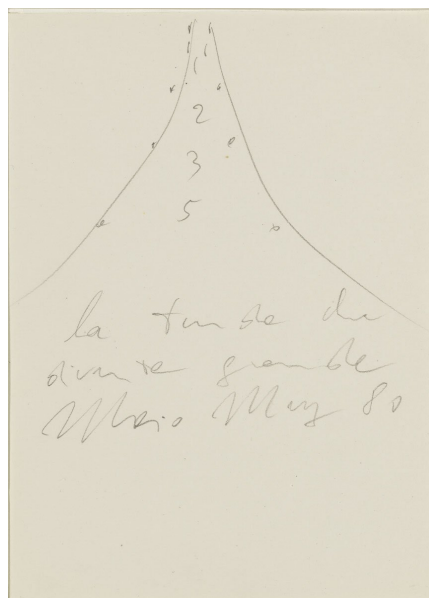 1
2
3
5
la tenda che
diventa grande
Mario Merz 80